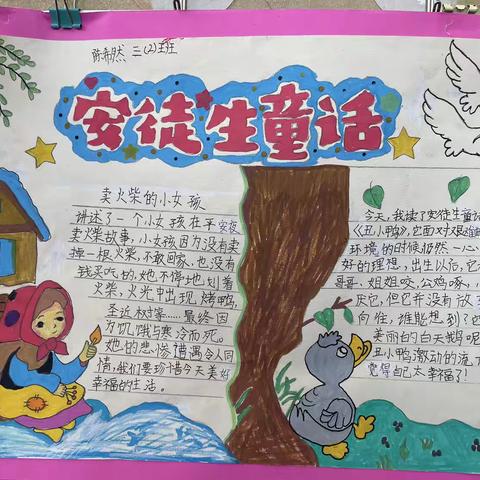 陈希然 三(2)班
安徒生童话
卖火柴的小女孩
讲述了一个小女孩在平安夜
卖火柴故事,小女孩因为没有卖
掉一根火柴,不敢回家,也没有
钱买吃的,她不停地划着
火柴,火光中出现烤鸭,
圣诞树,……最终因
为饥饿与寒冷而死。
她的悲惨遭遇令人同
情,我们要珍惜今天美好
幸福的生活。
今天,我读了安徒生童话
《丑小鸭》,它面对艰难
环境的时候仍然一心
好的理想,出生以后,它
哥哥,姐姐咬,公鸡啄,
厌它,但它并没有放
向往,谁能想到了
美丽的白天鹅呢
丑小鸭激动的流下
觉得自己太幸福了!